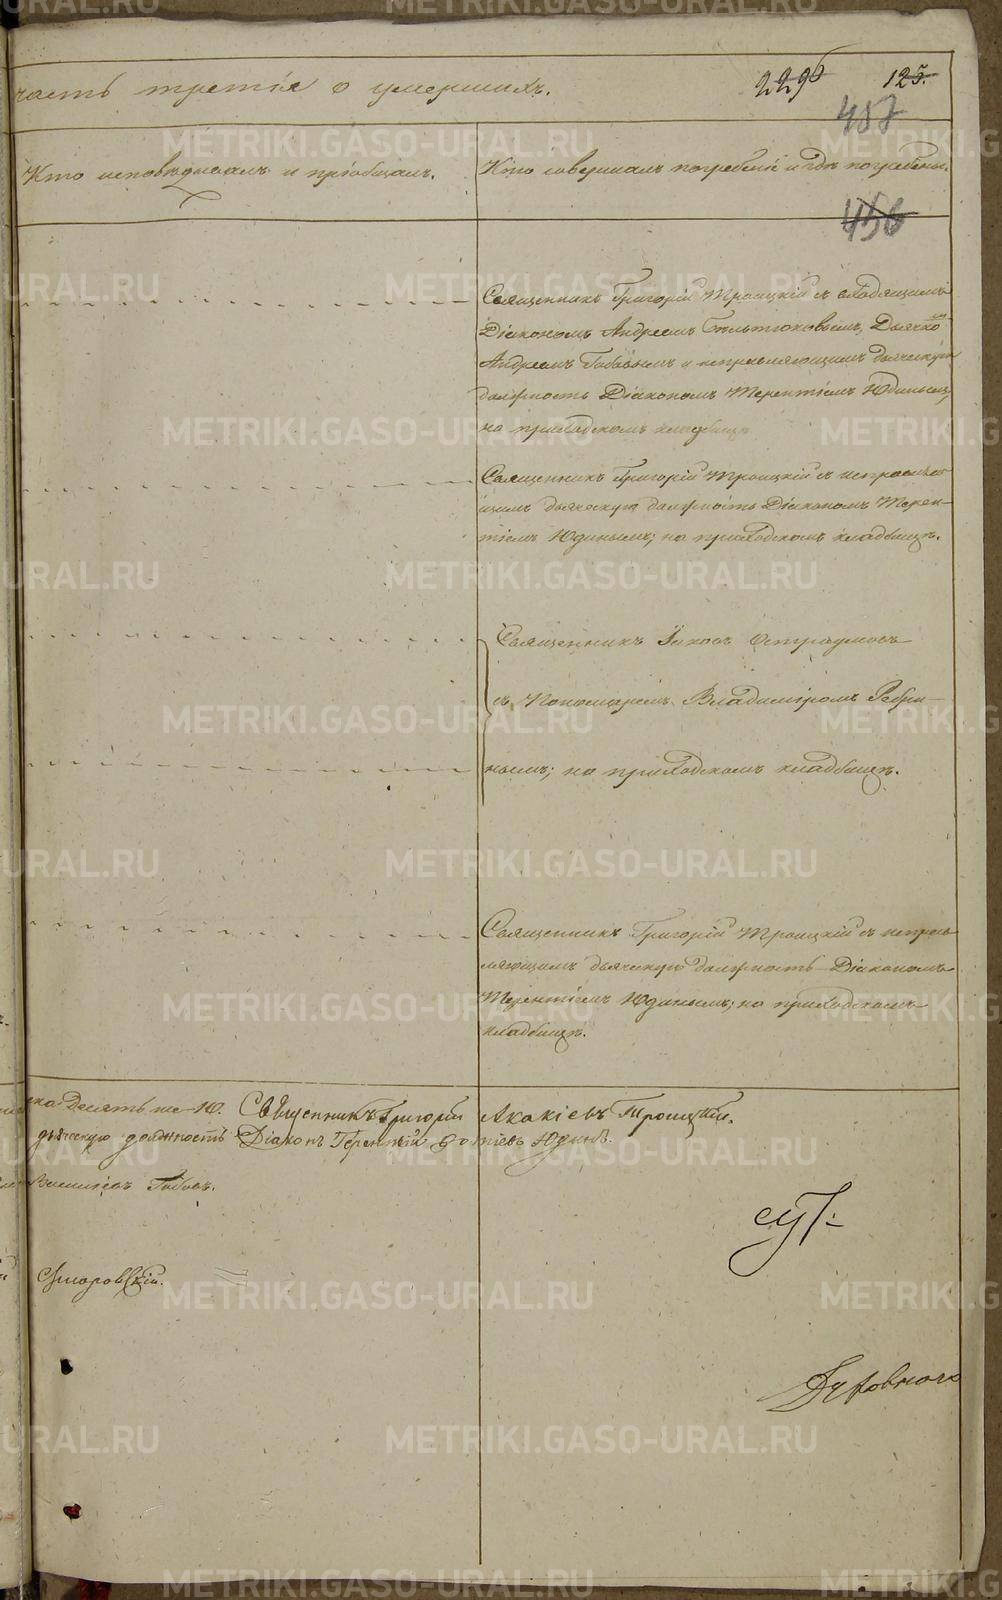 часть третія о умершихъ.
229б 125.
457
Кто исповѣдывалъ и пріобщалъ.
Кто совершалъ погребеніе и гдѣ погребены.
456
Священникъ Григорій Троицкій съ
Діакономъ Андреемъ Дьячко
Андреемъ и исправляющимъ дьяческую
должность Діакономъ Терентіемъ Юдинымъ,
на приходскомъ кладбищѣ
Священникъ Григорій Троицкій съ исправляю
щимъ дьяческую должность Діакономъ Терен-
тіемъ Юдинымъ; на приходскомъ кладбищѣ.
Священникъ Іаковъ
съ Пономаремъ Владиміромъ Ребри-
нымъ; на приходскомъ кладбищѣ.
Священникъ Григорій Троицкій съ исправ
ляющимъ дьяческую должность Діакономъ
Терентіемъ Юдинымъ; на приходскомъ
кладбищѣ.
Священникъ Григорій Акакіевъ Троицкій.
дьяческую должность Діаконъ Терентій Фотіевъ Юдинъ.
Василіевъ
METRIKI.GASO-URAL.RU